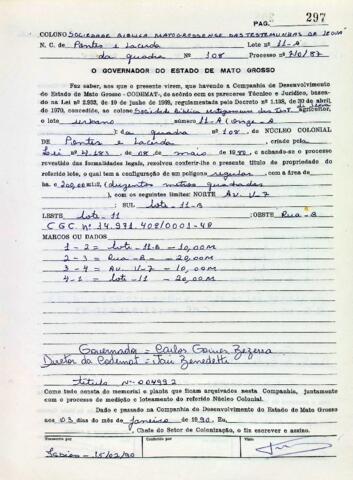 PAG. 297
COLONO SOCIEDADE BIBLICA MATOGROSSENSE DAS TESTEMUNHAS DE JEOVÁ
N. C. de Pontes e Lacerda Lote nº 11-A
da quadra Nº 108 Processo nº 710/87
O GOVERNADOR DO ESTADO DE MATO GROSSO
Faz saber, aos que a presente virem, que havendo a Companhia de Desenvolvimento
do Estado de Mato Grosso - CODEMAT, de acôrdo com os pareceres Técnico e Jurídico, basea-
da na Lei nº 2.933, de 19 de junho de 1969, regulamentada pelo Decreto nº 1.138, de 30 de abril
de 1970, concedido, ao colono Sociedade Bíblica agricultor,
o lote urbano número 11-A (onze-A
): da quadra nº 108, do NÚCLEO COLONIAL
DE Pontes e Lacerda, criado pela
Lei nº de 08 de maio de e achando-se o processo
revestido das formalidades legais, resolveu conferir-lhe o presente título de propriedade do
referido lote, o qual tem a configuração de um polígono regular com a área de
ha. 0 200,00 m2, (duzentos metros quadrados
), com os seguintes limites: NORTE Av. V-7
; SUL Lote-11-B
LESTE Lote-11 ;OESTE Rua-B
C.G.C. nº 14.971.408/0001-48
MARCOS OU DADOS
1-2 = Lote-11-B - 10,00M
2-3 = Rua-B - 20,00M
3-4 = Av. V-7 - 10,00M
4-1 = Lote-11 - 20,00M
Governador = Carlos Gomes Bezerra
Diretor da Codemat = Jair Benedetti
título Nº 004992
Como tudo consta do memorial e planta que ficam arquivados nesta Companhia, juntamente
com o processo de medição e loteamento do referido Núcleo Colonial.
Dado e passado na Companhia de Desenvolvimento do Estado de Mato Grosso
aos 03 dias do mês de janeiro de 1990. Eu,
Chefe do Setor de Colonização, o fiz escrever e assino.
Escrito por Conferido por Visto
15/02/90